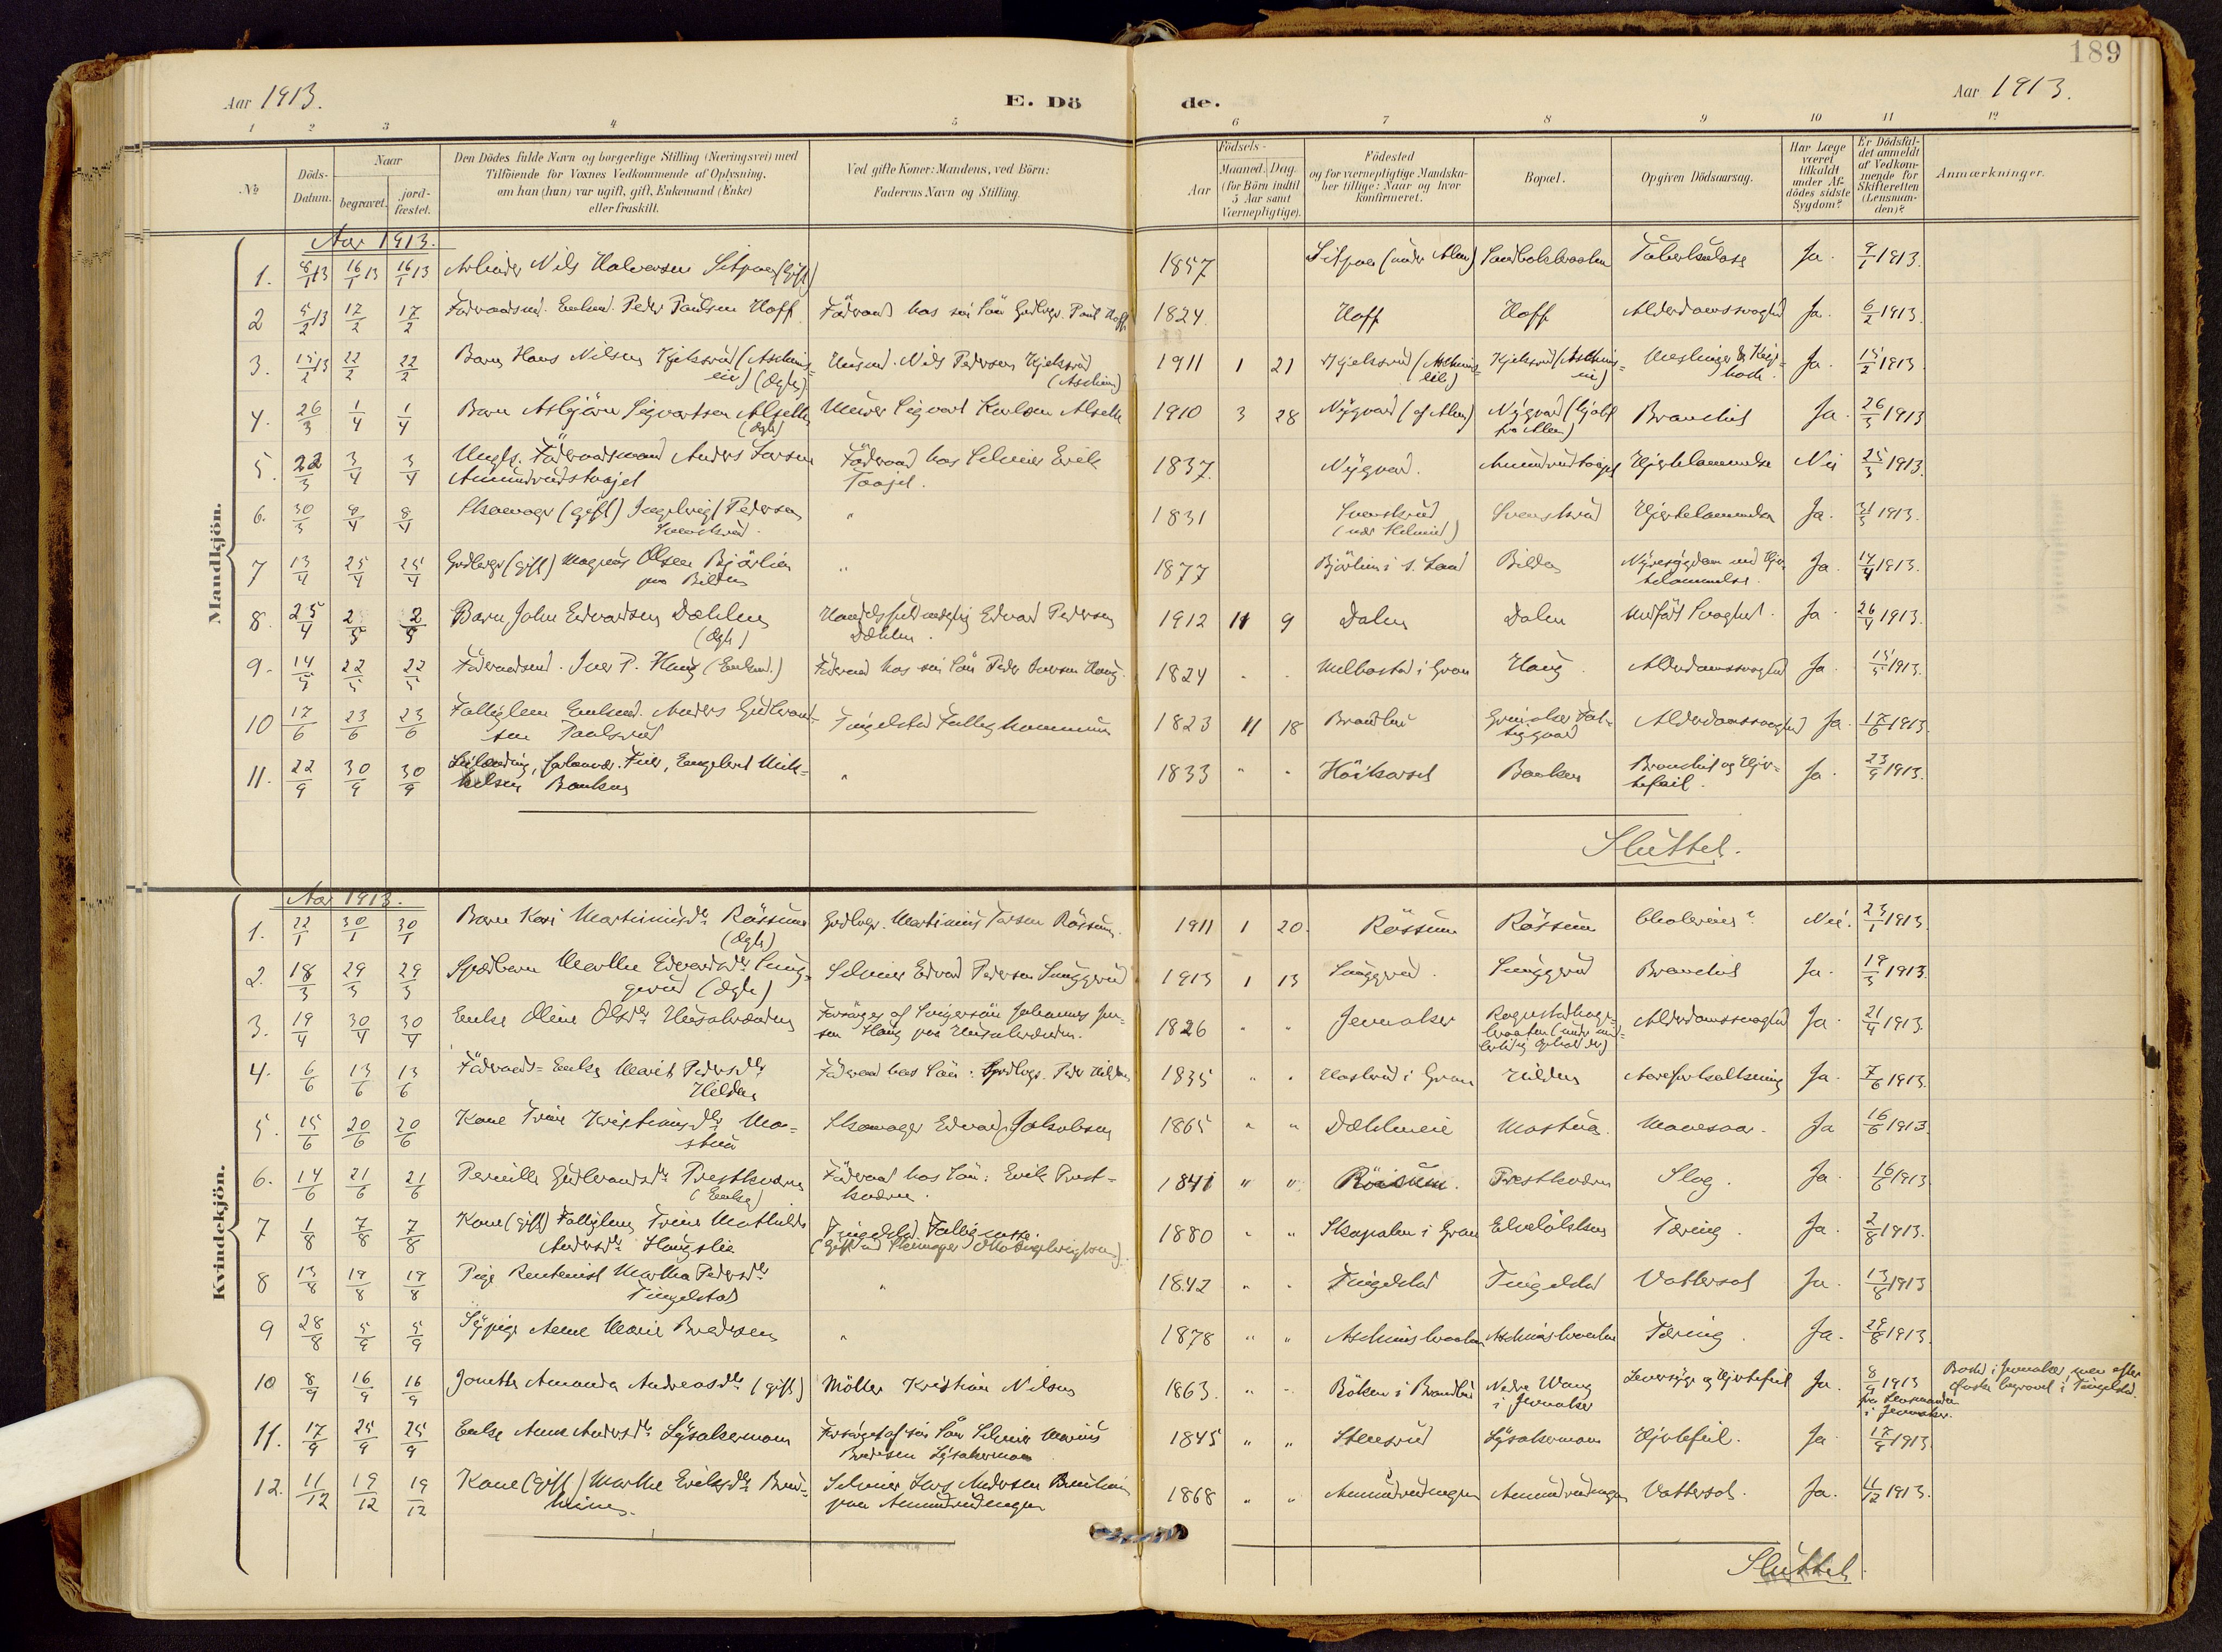 189
Aar 1913.
E. Dö de.
Aar 1913.
1 2 3 4 5 6 7 8 9 10 11 12
№
Döds-Datum.
Naar
begravet.
jord-fæstet.
Den Dödes fulde Navn og borgerlige Stilling (Næringsvei) med
Tilföiende for Voxnes Vedkommende af Oplysning,
om han (hun) var ugift, gift, Enkemand (Enke)
eller fraskilt.
Ved gifte Koner: Mandens, ved Börn:
Faderens Navn og Stilling.
Födsels-
Aar
Maaned. Dag.
(for Börn indtil
5 Aar samt
Værnepligtige).
Födested
og for værnepligtige Mandska-
ber tillige: Naar og hvor
konfirmeret.
Bopæl.
Opgiven Dödsaarsag.
Har Læge
været
tilkaldt
under Af-
dödes sidste
Sygdom?
Er Dödsfal-
det anmeldt
af Vedkom-
mende for
Skifteretten
(Lensman-
den)?
Anmærkninger.
Mandkjön.
Aar 1913.
1. 8/1 13 16/1 13 16/1 13 Arbeider Nils Halvorsen (Gift) 1857 Tuberkulose Ja. 9/1 1913.
2 5/2 13 17/2 17/2 Föderaadsmd. Enkemd. Peder Paulsen Hoff Föderaad hos sin Sön Grdbrgr. Paul Hoff 1824. Hoff Hoff Alderdomssvaghed Ja. 6/2 1913.
3. 15/2 13 22/2 22/2 Barn Hans Nilsen Kjelsrud (Aschims-
eie) (Ægte) Nils Pedersen Kjelsrud
(Aschim) 1911 1 21 Kjelsrud (Aschims-
eie) Kjelsrud (Aschims-
eie) Ja. 15/2 1913.
4. 26/3 1/4 1/4 Barn Asbjörn Sigvartsen Alsethe
(Ægte) Murer Sigvart Karlsen Alseth 1910 3 28 Nygaard Nygaard Bronchit Ja. 26/3 1913
5. 22/3 3/4 3/4 Ungk. Föderaadsmand Anders Larsen
Amundrudstoajet Föderaad hos Selveier Erik
Toajet. 1837. Nygaard. Amundrudtoajet Hjertelammelse Nei 25/3 1913.
6. 30/3 8/4 8/4 Skomager (gift) Ingebrigt Pedersen
Svenskrud. " 1831 Svenskrud Svenskrud Hjertelammelse Ja. 31/3 1913.
7 13/4 25/4 25/4 Grdbrgr (gift) Magnus Olsen Björlien
paa Bilden " 1877 Björlien i S. Land Bilden Nyresygdom med Hjer-
telammelse. Ja. 14/4 1913.
8. 25/4 2/5 2/5 Barn John Edvardsen Dæhlen
(Ægte) Handelsfuldmægtig Edvard Pedersen
Dæhlen. 1912 11 9 Dalen Dalen Medfödt Svaghed. Ja. 26/4 1913.
9. 14/5 22/5 22/5 Föderaadsmd. Iver P. Haug (Enkemd.) Föderaad hos sin Sön Peder Iversen Haug. 1824 " " Melbostad i Gran Haug Alderdomssvaghed Ja. 15/5 1913.
10 17/6 23/6 23/6 Fattiglem Enkemd. Anders Gudbrand-
sen Paulsrud Tingelstad Fattigkommun 1823 11 18 Brandbu Grinaker Fat-
tiggaard Alderdomssvaghed Ja. 17/6 1913.
11. 22/9 30/9 30/9 Engebret Mik-
kelsen Banken " 1833 " " Höikorset Banken Bronchit og Hjer-
tefeil. Ja. 23/9 1913.
Sluttet.
Kvindekjön.
Aar 1913.
1. 22/1 30/1 30/1 Barn Kari Martiniusdr Rössum
(Ægte) Grdbrgr. Martinius Larsen Rössum. 1911 1 20. Rössum Rössum Cholerine? Nei. 23/1 1913.
2. 18/3 29/3 29/3 Spædbarn Marthe Edvardsdr
(Ægte) Selveier Edvard Pedersen 1913 1 13 Bronchit Ja. 19/3 1913.
3. 19/4 30/4 30/4 Enke Oline Olsdr Forsörges af Svigersön Johannes
Haug 1826 " " Jevnaker Alderdomssvaghed Ja. 21/4 1913.
4. 6/6 13/6 13/6 Föderaads-Enke Marit Pedersdr
Hilden Föderaad hos Sön: Grdbrgr. Peder Hilden 1835 " " i Gran Hilden Aareforkalkning Ja. 7/6 1913.
5. 15/6 20/6 20/6 Kone Trine Kristiansdr Mo-
stua Skomager Edvard Jakobsen 1865 " " Dæhleneie Mostua. Mavesaar. Ja 16/6 1913.
6. 14/6 21/6 21/6 Pernille Gudbrandsdr Prestkværn
(Enke) Föderaad hos Sön: Erik Prest-
kværn. 1841 " " Röisum. Prestkværn Slag. Ja. 16/6 1913.
7 1/8 7/8 7/8 Kone (gift) Fattiglem Trine Mathilde
Andersdr Haugslie Tingelstad Fattigkasse.
1880 " " i Gran Tæring. Ja. 2/8 1913.
8 13/8 19/8 19/8 Pige Rentenist Martha Pedersdr
Tingelstad " 1842 " " Tingelstad Tingelstad Vattersot Ja. 13/8 1913
9 28/8 5/9 5/9 Sypige Anne Marie Bredesen " 1878 " " Aschimsbraaten Aschimsbraaten Tæring. Ja. 29/8 1913.
10 8/9 16/9 16/9 Jonette Amanda Andreasdr (gift) Möller Kristian Nilsen 1863. " " Röken i Brandbu Nedre Wang
i Jevnaker Leversyge og Hjertefeil Ja. 8/9 1913
fra Lensmanden
i Jevnaker. Bosted i Jevnaker, men efter
Önske begravet i Tingelstad.
11. 17/9 25/9 25/9 Enke Anne Andersdr Lysakermoen Forsörget af sin Sön Selveier Marius
Bredesen Lysakermoen 1845 " " Stensrud Lysakermoen Hjertefeil. Ja 17/9 1913
12. 11/12 19/12 19/12 Kone (gift) Marthe Eriksdr Selveier Lars Andersen
paa Amundrudengen 1868 " " Amundrudengen Amundrudengen Vattersot. Ja. 11/12 1913.
Sluttet